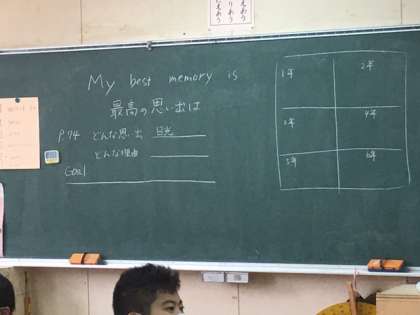 My best memory is
最高の思い出は
P.74 どんな思い出 日光
どんな理由
Goal
1年
2年
3年
4年
5年
6年